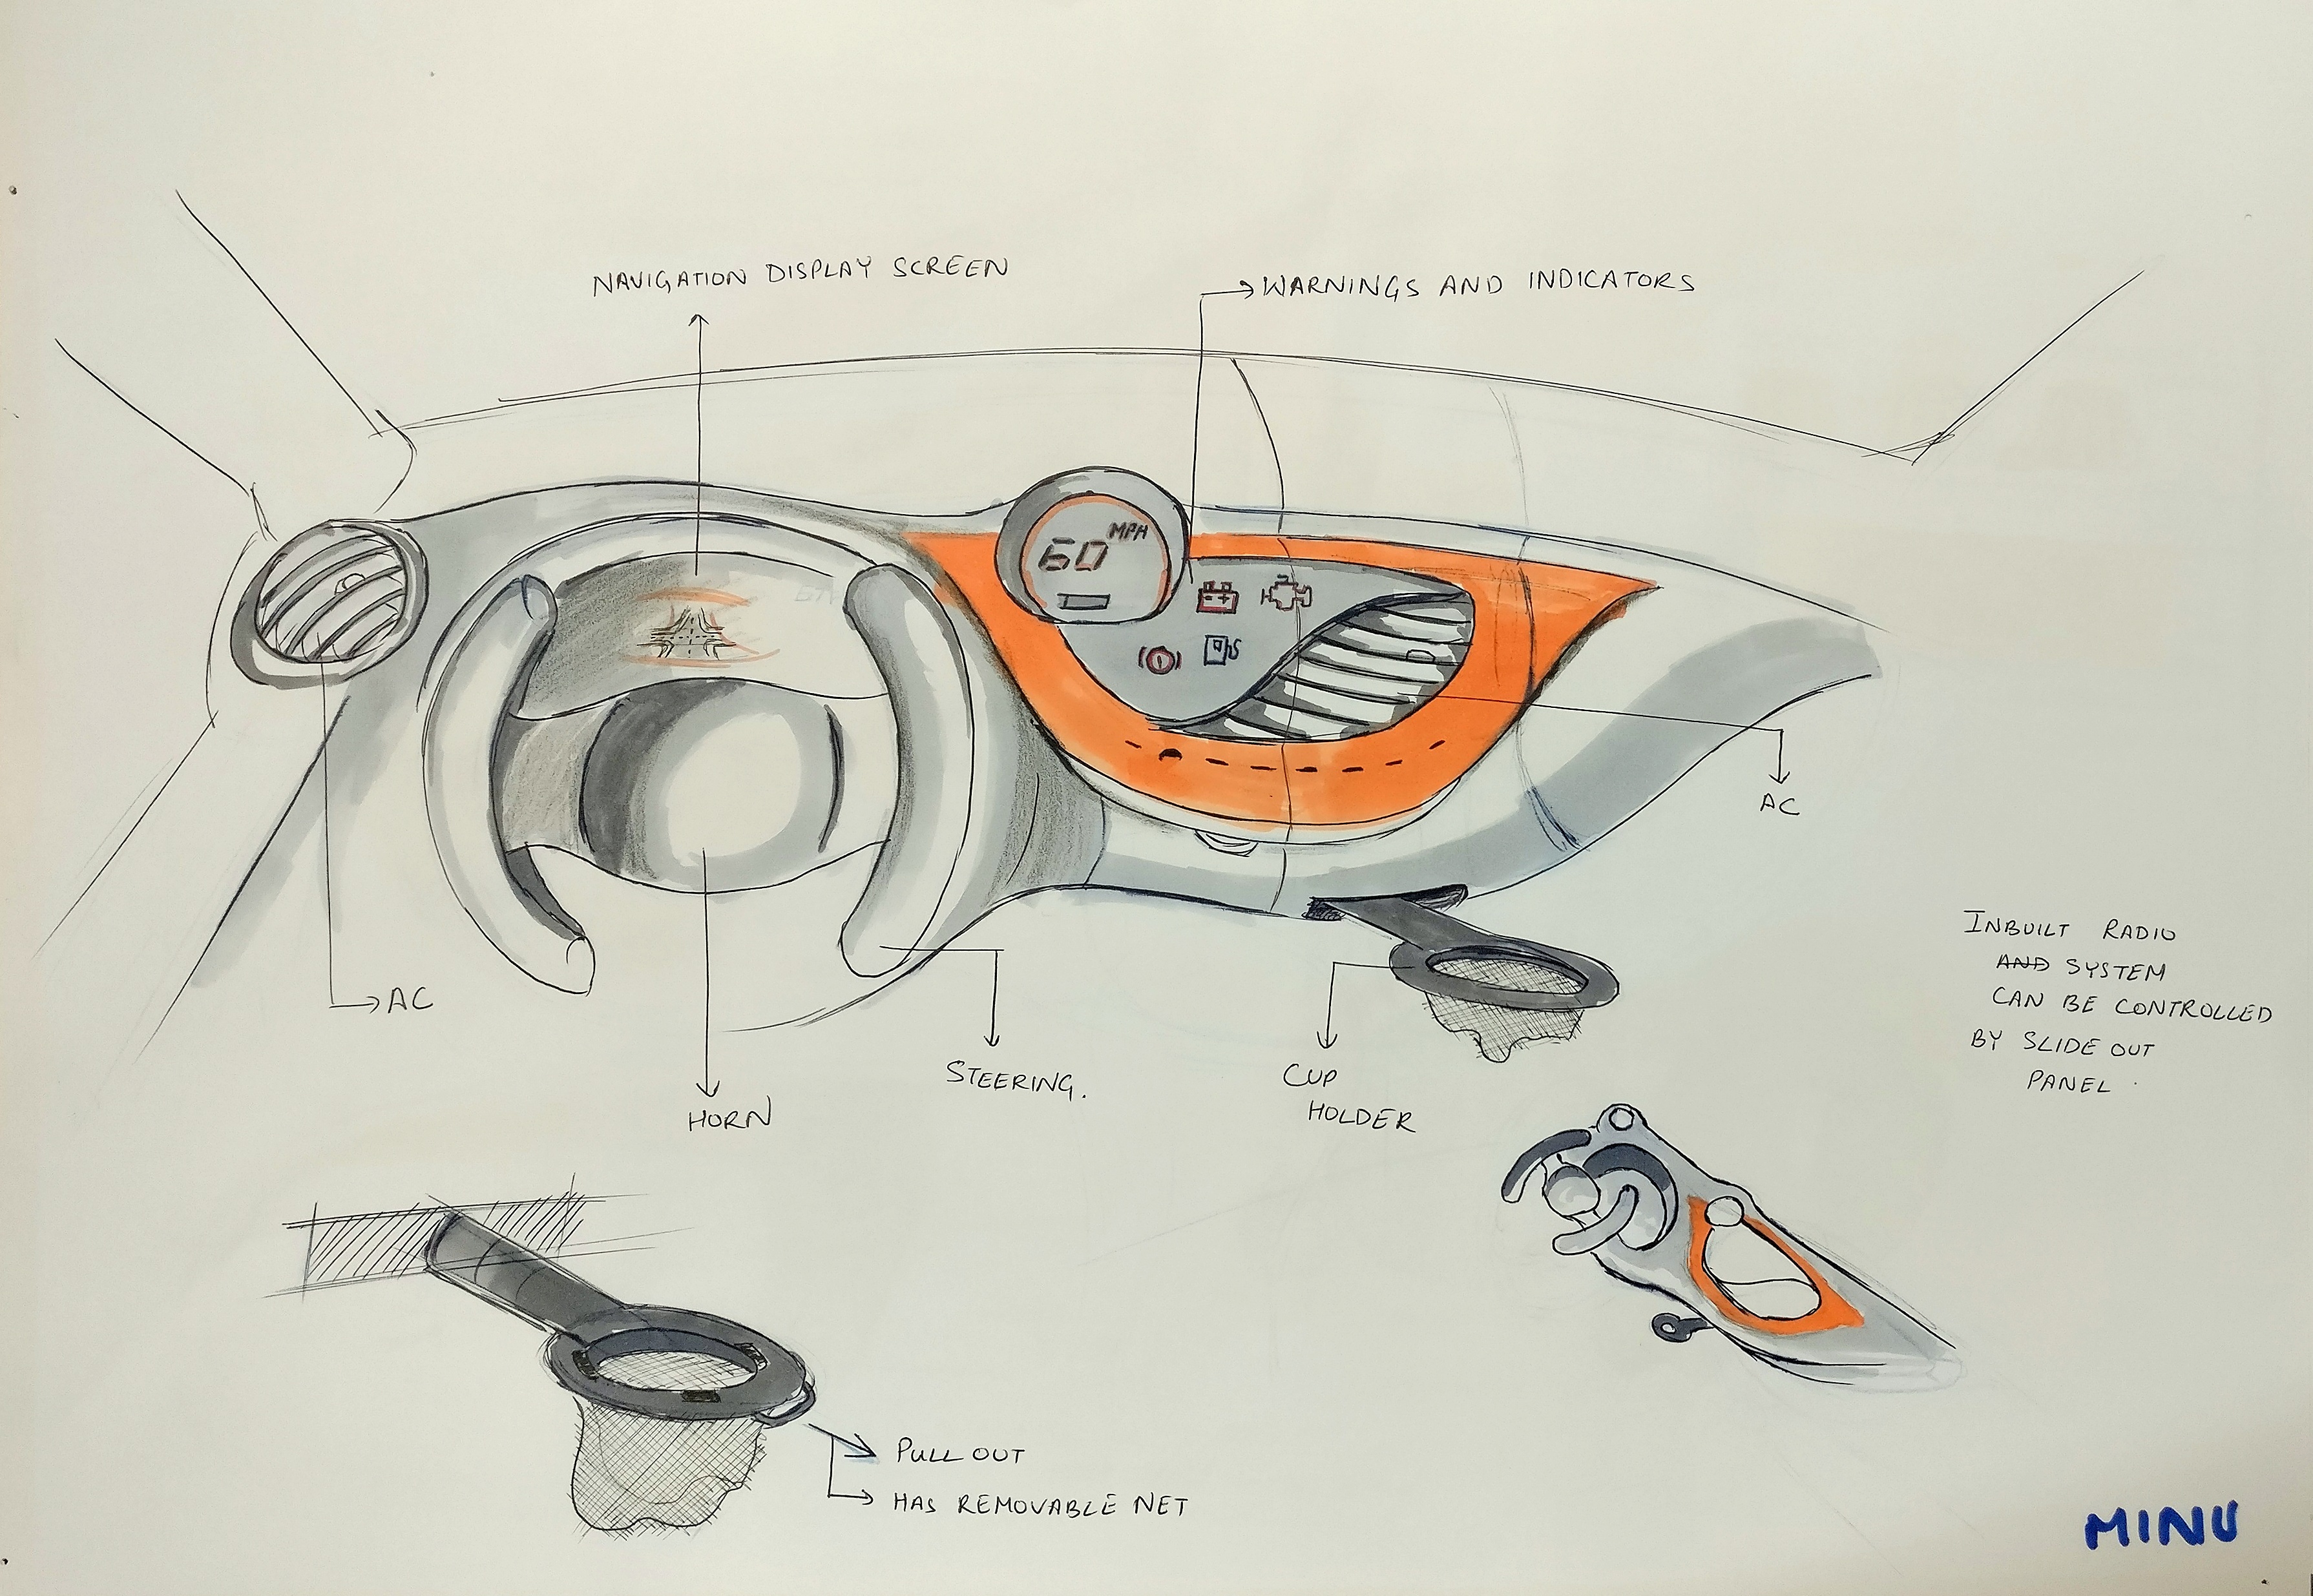 NAVIGATION DISPLAY SCREEN
WARNINGS AND INDICATORS
60 MPH
AC
AC
HORN
STEERING.
CUP
HOLDER
INBUILT RADIO
AND SYSTEM
CAN BE CONTROLLED
BY SLIDE OUT
PANEL
PULL OUT
HAS REMOVABLE NET
MINU